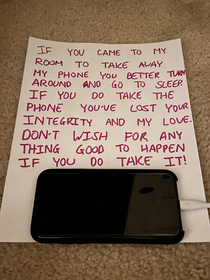 IF YOU CAME TO MY
ROOM TO TAKE AWAY
MY PHONE YOU BETTER TURN
AROUND AND GO TO SLEEP
IF YOU DO TAKE THE
PHONE YOU'VE LOST YOUR
INTEGRITY AND MY LOVE.
DON'T WISH FOR ANY
THING GOOD TO HAPPEN
IF YOU DO TAKE IT!